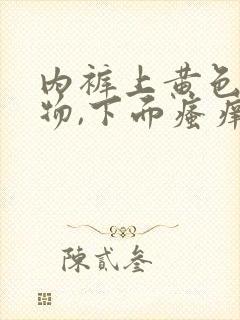 内裤上黄色
物,下面瘙痒
陳貳叁